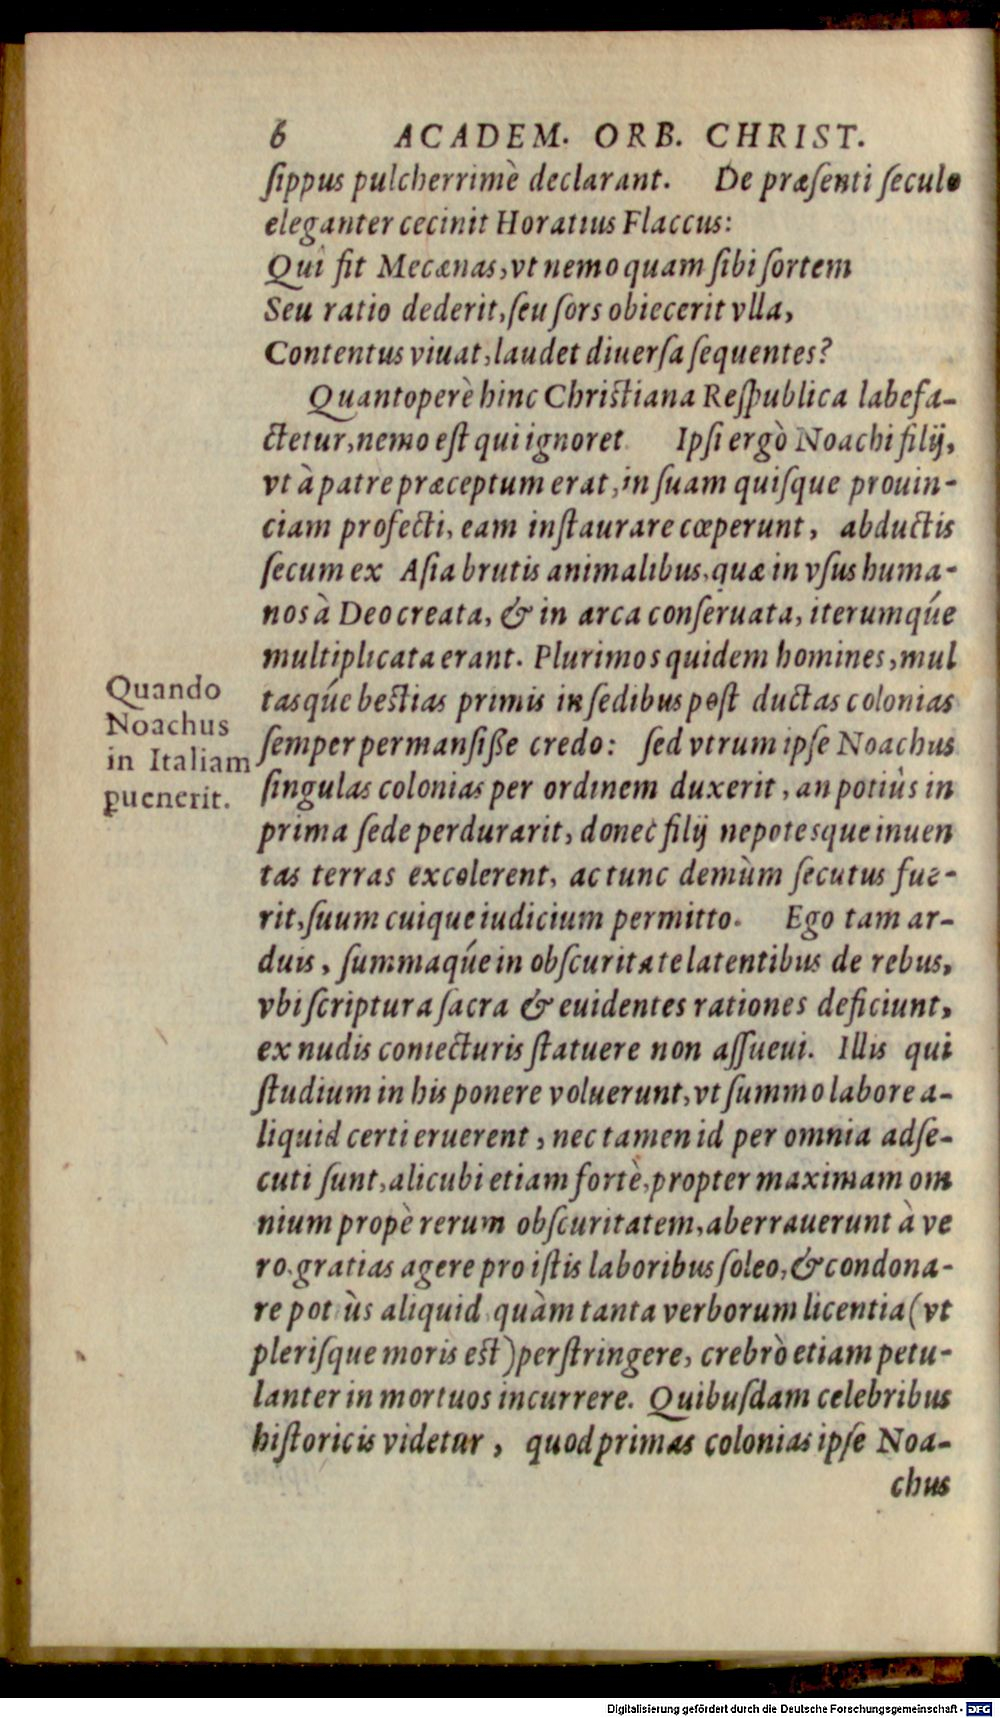 6 ACADEM. ORB. CHRIST.
ſippus pulcherrimè declarant. De præſenti ſeculo
eleganter cecinit Horatius Flaccus:
Quî fit Mecænas, vt nemo quam ſibi ſortem
Seu ratio dederit, ſeu ſors obiecerit vlla,
Contentus viuat, laudet diuerſa ſequentes?
Quantoperè hinc Chriſtiana Reſpublica labefa-
ctetur, nemo eſt qui ignoret. Ipſi ergò Noachi filij,
vt à patre præceptum erat, in ſuam quiſque prouin-
ciam profecti, eam inſtaurare cœperunt, abductis
ſecum ex Aſia brutis animalibus, quæ in vſus huma-
nos à Deo creata, & in arca conſeruata, iterumq́ue
multiplicata erant. Plurimos quidem homines, mul
tasq́ue beſtias primis in ſedibus poſt ductas colonias
ſemper permanſiſſe credo: ſed vtrum ipſe Noachus
ſingulas colonias per ordinem duxerit, an potiùs in
prima ſede perdurarit, donec filij nepotesque inuen
tas terras excolerent, ac tunc demùm ſecutus fue-
rit, ſuum cuique iudicium permitto. Ego tam ar-
duis, ſummaq́ue in obſcuritate latentibus de rebus,
vbi ſcriptura ſacra & euidentes rationes deficiunt,
ex nudis coniecturis ſtatuere non aſſueui. Illis qui
ſtudium in his ponere voluerunt, vt ſummo labore a-
liquid certi eruerent, nec tamen id per omnia adſe-
cuti ſunt, alicubi etiam fortè, propter maximam om
nium propè rerum obſcuritatem, aberrauerunt à ve
ro, gratias agere pro iſtis laboribus ſoleo, & condona-
re potiùs aliquid, quàm tanta verborum licentia (vt
pleriſque moris eſt) perſtringere, crebrò etiam petu-
lanter in mortuos incurrere. Quibuſdam celebribus
hiſtoricis videtur, quod primas colonias ipſe Noa-
chus
Quando
Noachus
in Italiam
puenerit.
Digitalisierung gefördert durch die Deutsche Forschungsgemeinschaft - DFG